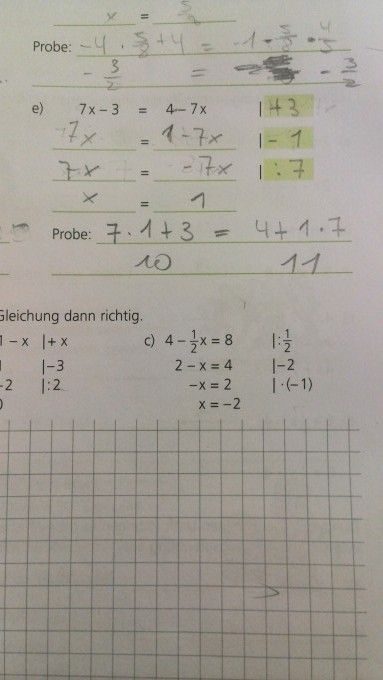 x = 5/8
Probe: -4 · + 4 = -1 ·
- 3/2 = - 3/2
e) 7x – 3 = 4 – 7x | +3
7x = 1-7x | - 1
7x = -7x | : 7
x = 1
Probe: 7·1+3 = 4+1·7
10 11
Gleichung dann richtig.
1 – x |+ x c) 4 – 1/2x = 8 |:1/2
|–3 2 – x = 4 |–2
–2 |:2 –x = 2 |·(–1)
x = –2